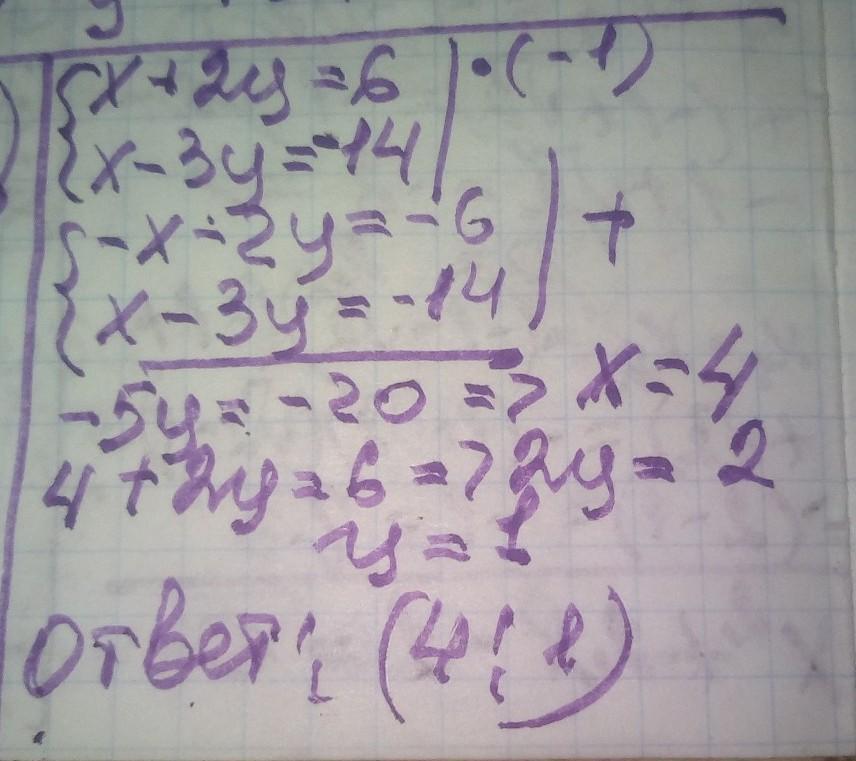 {x+2y=6 | ·(-1)
{x-3y=-14
{-x-2y=-6 | +
{x-3y=-14
-5y=-20 => x=4
4+2y=6 => 2y=2
y=1
Ответ: (4; 1)